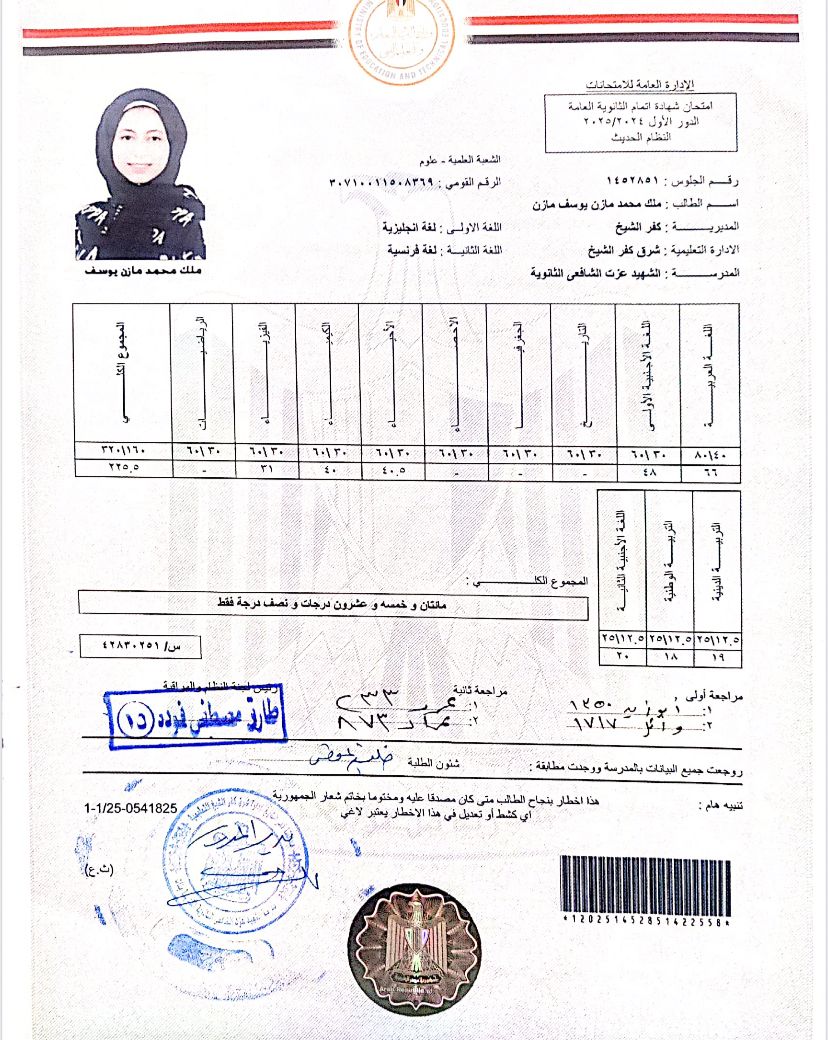 OF EDUCATION AND TECHNICAL
الإدارة العامة للامتحانات
امتحان شهادة اتمام الثانوية العامة
الدور الأول ٢٠٢٥/٢٠٢٤
النظام الحديث
الشعبة العلمية - علوم
رقم الجلوس : ١٤٥٢٨٥١
الرقم القومي : ٣٠٧١٠٠١١٥٠٨٣٦٩
اسم الطالب : ملك محمد مازن يوسف مازن
المديرية : كفر الشيخ
اللغة الاولى : لغة انجليزية
الادارة التعليمية : شرق كفر الشيخ
اللغة الثانية : لغة فرنسية
المدرسة : الشهيد عزت الشافعى الثانوية
ملك محمد مازن يوسف
اللغة العربية اللغة الأجنبية الأولى التاريخ الجغرافيا الاحصاء الأحياء الكيمياء الفيزياء الرياضيات المجموع الكلي
٨٠\٤٠ ٦٠\٣٠ ٦٠\٣٠ ٦٠\٣٠ ٦٠\٣٠ ٦٠\٣٠ ٦٠\٣٠ ٦٠\٣٠ ٦٠\٣٠ ٣٢٠\١٦٠
٦٦ ٤٨ - - - ٤٠.٥ ٤٠ ٣١ - ٢٢٥.٥
التربية الدينية التربية الوطنية اللغة الأجنبية الثانية
٢٥\١٢.٥ ٢٥\١٢.٥ ٢٥\١٢.٥
١٩ ١٨ ٢٠
المجموع الكلي :
مائتان و خمسه و عشرون درجات و نصف درجة فقط
س/ ٤٢٨٣٠٢٥١
مراجعة أولى
مراجعة ثانية
رئيس لجنة النظام والمراقبة
١: ١٣٥٠
١: ٢٣٣
٢: وائل ١٧١٧
٢: عماد ٨٧٣
طارق مصطفى (١٥)
روجعت جميع البيانات بالمدرسة ووجدت مطابقة : شئون الطلبة
تنبيه هام : هذا اخطار بنجاح الطالب متى كان مصدقا عليه ومختوما بخاتم شعار الجمهورية
اي كشط أو تعديل في هذا الاخطار يعتبر لاغي
1-1/25-0541825
(ث.ع)
مدير المدرسة
*12025145285142255​8*
Arab Republic of